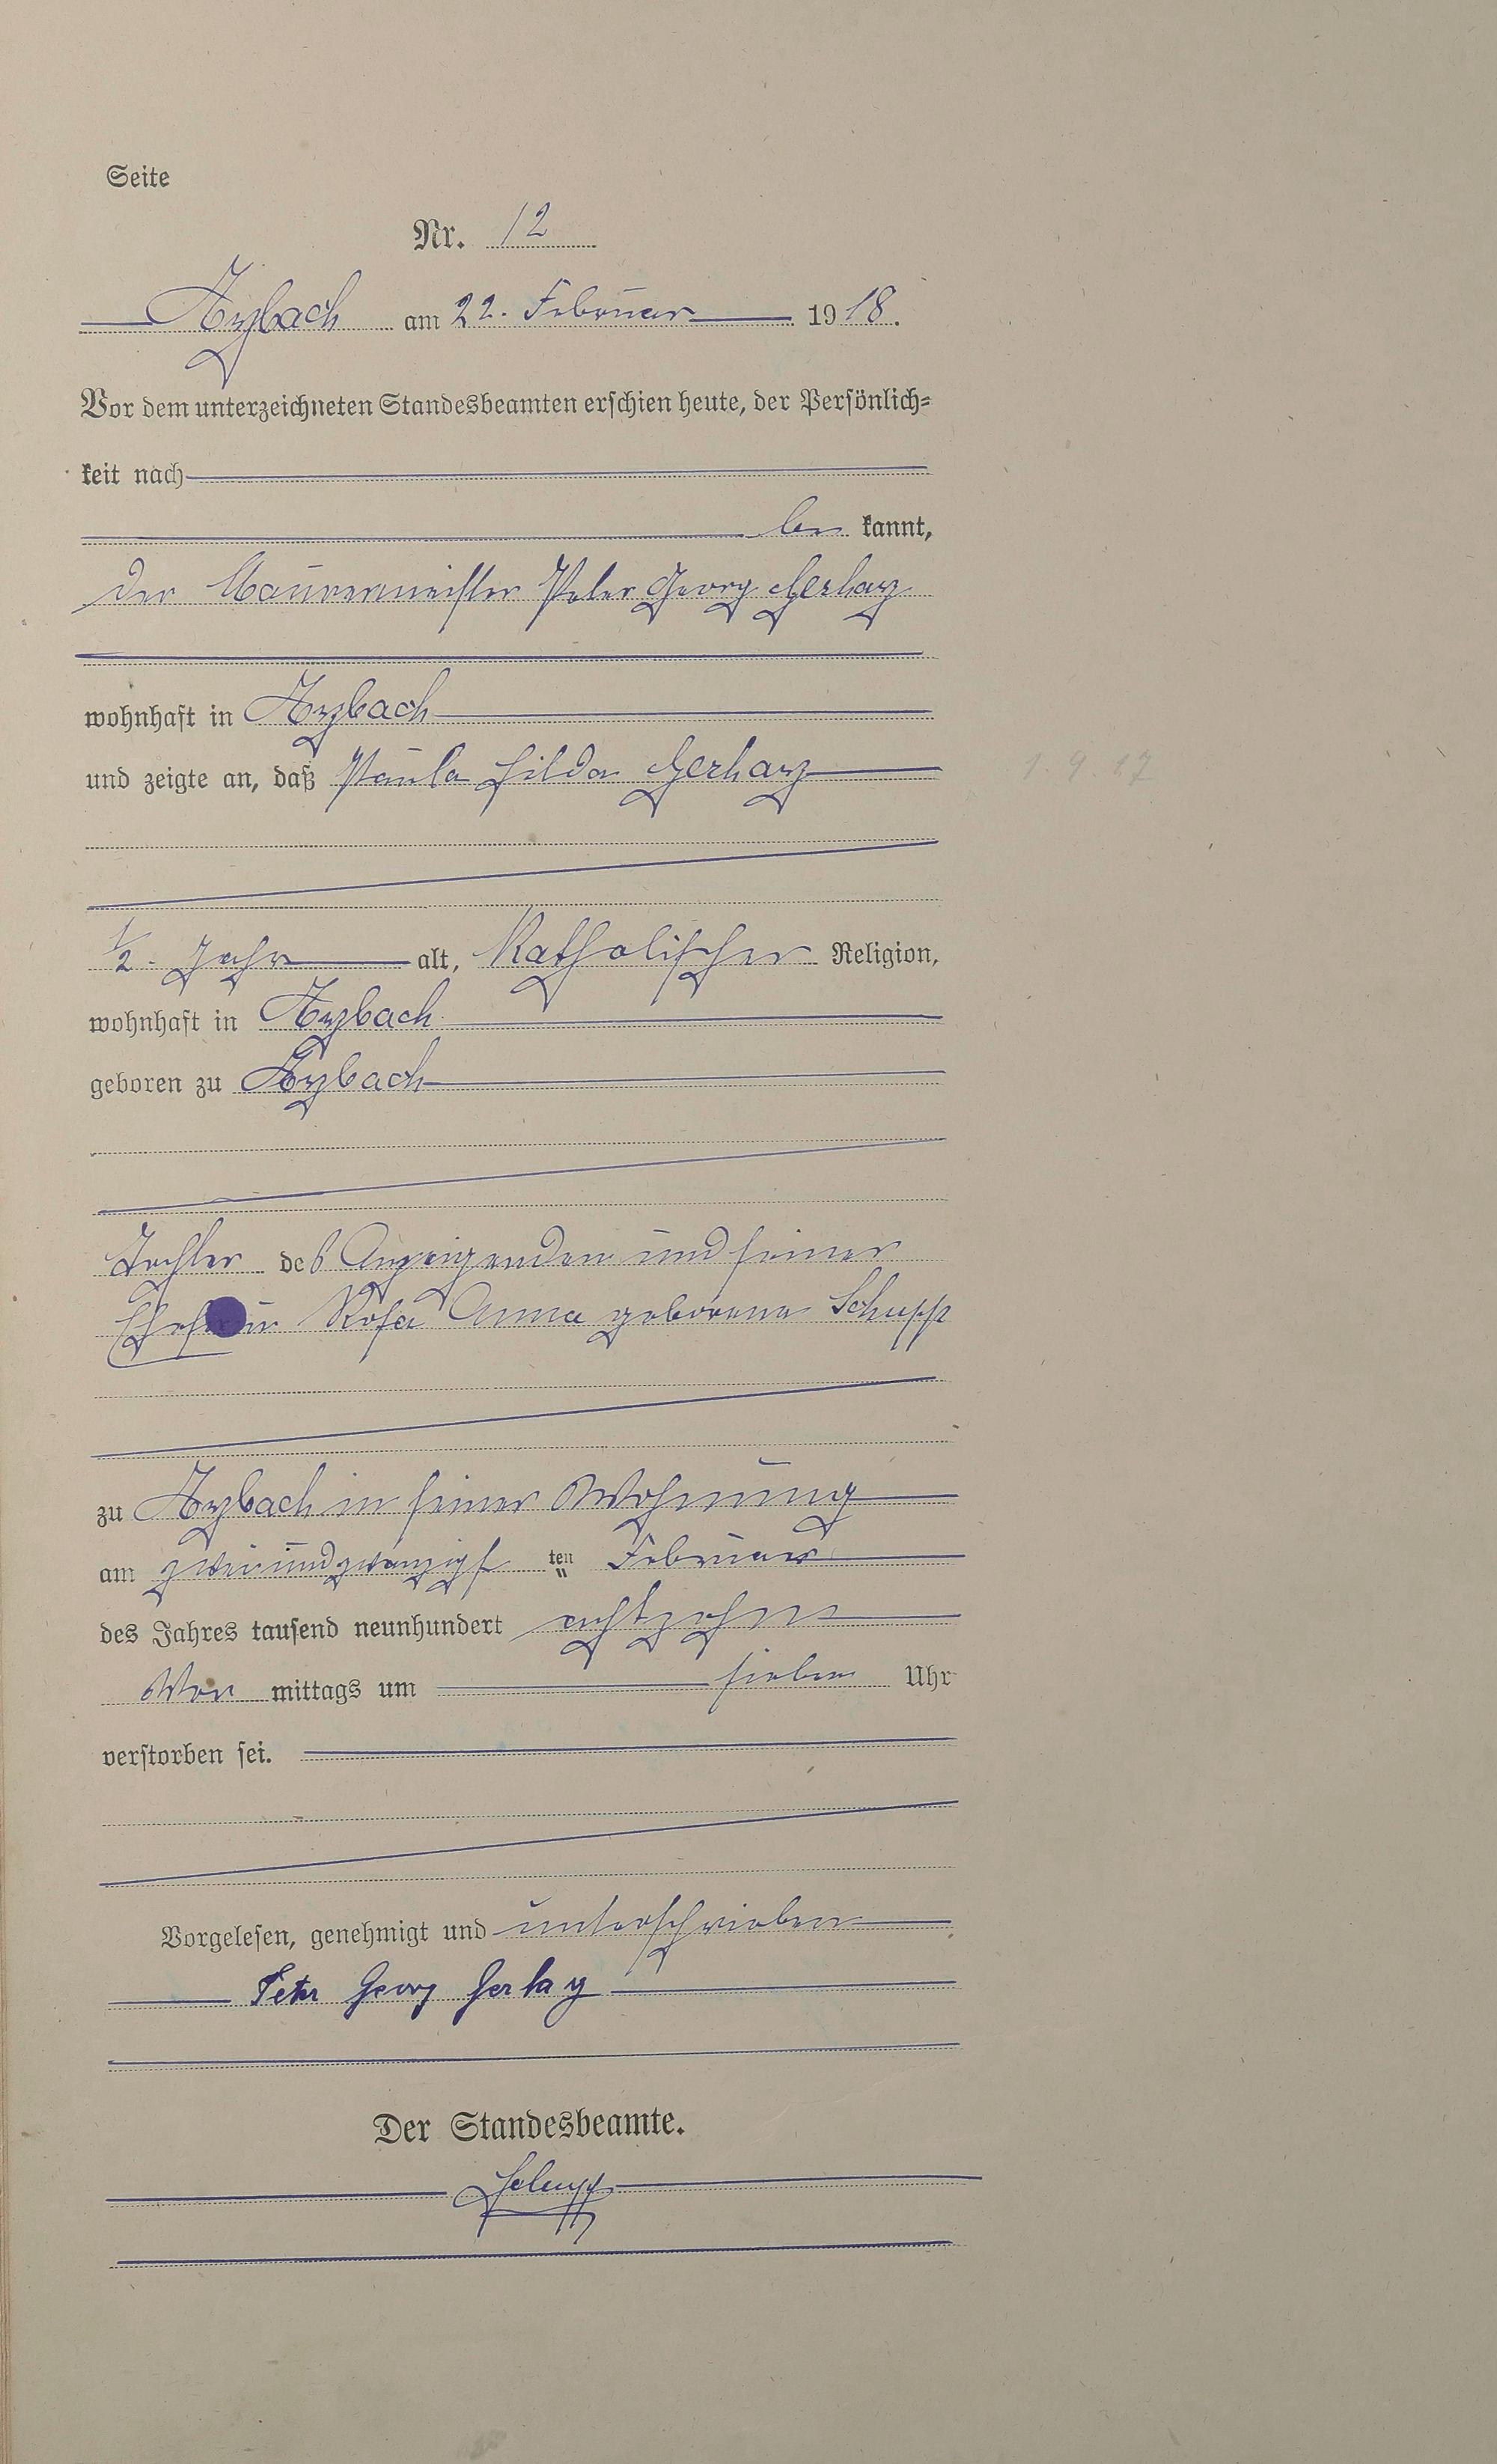 Seite
Nr. 12
Arzbach am 22. Februar 1918.
Vor dem unterzeichneten Standesbeamten erschien heute, der Persönlich=
keit nach
be kannt,
der Maurermeister Peter Georg Gerharz
wohnhaft in Arzbach
und zeigte an, daß Paula Hilda Gerharz
1.9.17
1/2 Jahr alt, Katholischer Religion,
wohnhaft in Arzbach
geboren zu Arzbach
Tochter des Anzeigenden und seiner
Ehefrau Rosa Anna geborene Schupp
zu Arzbach in seiner Wohnung
am zweiundzwanzigs ten Februar
des Jahres tausend neunhundert achtzehn
Vor mittags um sieben Uhr
verstorben sei.
Vorgelesen, genehmigt und unterschrieben
Peter Georg Gerharz
Der Standesbeamte.
Schupp